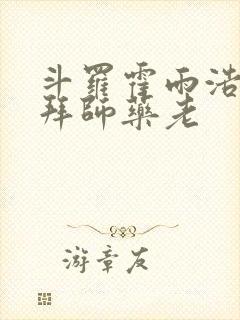 斗羅霍雨浩
拜師藥老
游章友